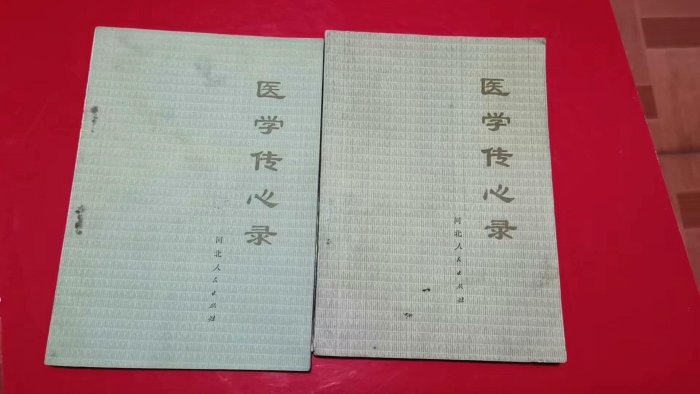 医学传心录
河北人民出版社
医学传心录
河北人民出版社